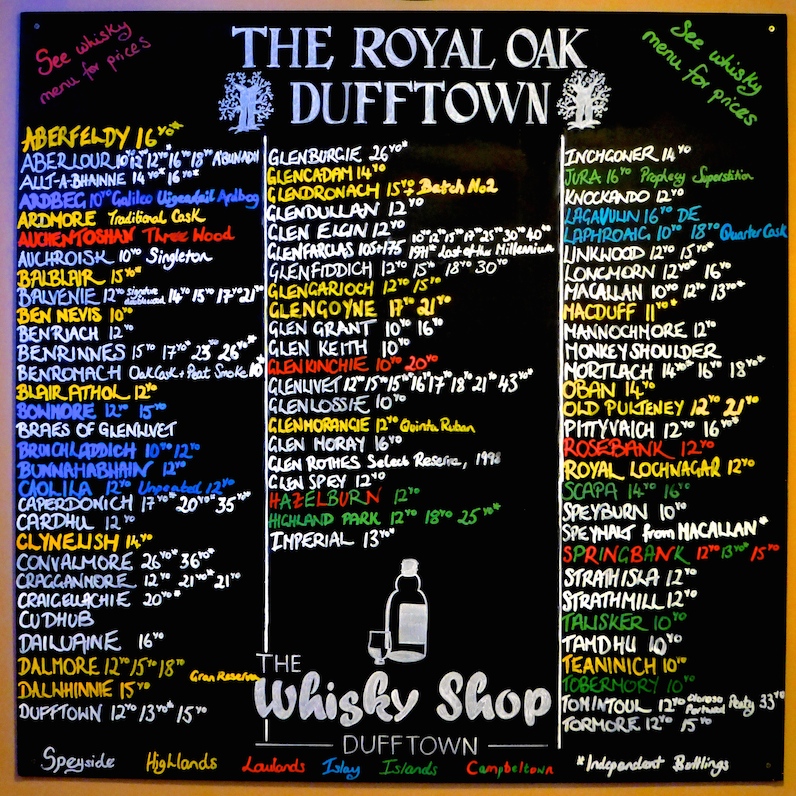 See whisky
menu for prices
THE ROYAL OAK
DUFFTOWN
See whisky
menu for prices
ABERFELDY 16yo*
ABERLOUR 10yo 12yo 12yo* 16yo 18yo A'BUNADH
ALLT-A-BHAINNE 14yo* 16yo*
ARDBEG 10yo Galileo Uigeadail Ardbog
ARDMORE Traditional Cask
AUCHENTOSHAN Three Wood
AUCHROISK 10yo Singleton
BALBLAIR 15yo*
BALVENIE 12yo signature 14yo 15yo 17yo 21yo
BEN NEVIS 10yo
BENRIACH 12yo
BENRINNES 15yo 17yo* 23yo 26yo*
BENROMACH Oak Cask + Peat Smoke 10yo
BLAIR ATHOL 12yo
BOWMORE 12yo 15yo
BRAES OF GLENLIVET
BRUICHLADDICH 10yo 12yo
BUNNAHABHAIN 12yo
CAOL ILA 12yo Unpeated 12yo
CAPERDONICH 17yo* 20yo* 35yo*
CARDHU 12yo
CLYNELISH 14yo
CONVALMORE 26yo* 36yo*
CRAGGANMORE 12yo 21yo* 21yo
CRAIGELLACHIE 20yo*
CUDHUB
DAILUAINE 16yo
DALMORE 12yo 15yo 18yo Gran Reserva
DALWHINNIE 15yo
DUFFTOWN 12yo 13yo* 15yo
GLENBURGIE 26yo*
GLENCADAM 14yo
GLENDRONACH 15yo + Batch No2
GLENDULLAN 12yo
GLEN ELGIN 12yo
GLENFARCLAS 105+175 10yo 12yo 15yo 17yo 25yo 30yo 40yo
1971* Last of the Millennium
GLENFIDDICH 12yo 15yo 18yo 30yo
GLENGARIOCH 12yo 15yo
GLENGOYNE 17yo 21yo
GLEN GRANT 10yo 16yo
GLEN KEITH 10yo
GLENKINCHIE 10yo 20yo
GLENLIVET 12yo 15yo 15yo* 16yo 17yo 18yo 21yo 43yo*
GLENLOSSIE 10yo
GLENMORANGIE 12yo Quinta Ruban
GLEN MORAY 16yo
GLEN ROTHES Select Reserve, 1998
GLEN SPEY 12yo
HAZELBURN 12yo
HIGHLAND PARK 12yo 18yo 25yo*
IMPERIAL 13yo*
THE
Whisky Shop
DUFFTOWN
INCHGOWER 14yo
JURA 16yo Prophecy Superstition
KNOCKANDO 12yo
LAGAVULIN 16yo DE
LAPHROAIG 10yo 18yo Quarter Cask
LINKWOOD 12yo 15yo*
LONGMORN 12yo* 16yo
MACALLAN 10yo 12yo 13yo*
MACDUFF 11yo*
MANNOCHMORE 12yo
MONKEY SHOULDER
MORTLACH 14yo* 16yo 18yo*
OBAN 14yo
OLD PULTENEY 12yo 21yo
PITTYVAICH 12yo 16yo*
ROSEBANK 12yo
ROYAL LOCHNAGAR 12yo
SCAPA 14yo 16yo
SPEYBURN 10yo
SPEYMALT from MACALLAN*
SPRINGBANK 12yo 13yo* 15yo
STRATHISLA 12yo
STRATHMILL 12yo
TALISKER 10yo
TAMDHU 10yo
TEANINICH 10yo
TOBERMORY 10yo
TOMINTOUL 12yo Oloroso Portwood Peaty 33yo
TORMORE 12yo 15yo
Speyside Highlands Lowlands Islay Islands Campbeltown *Independent Bottlings